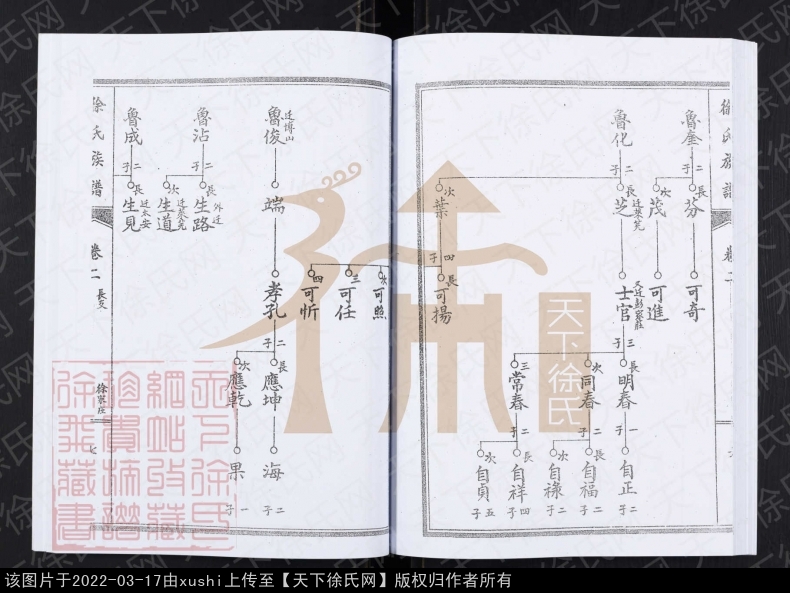 徐氏族譜
卷二
魯奎
二子
長
芬
次
茂
可奇
可進
魯化
二子
長
芝
次
葉
士官
三子
四子
長
可揚
長
明春
次
同春
三
常春
一子
二子
二子
自正
長
自福
次
自祿
長
自祥
次
自貞
二子
二子
二子
四子
五子
次
可照
三
可任
四
可忻
魯俊
遷博山
端
孝孔
二子
長
應坤
次
應乾
海
果
二子
一子
魯沾
二子
長
生路
外迁
次
生道
魯成
二子
長
生見
迁太安
徐氏族譜
卷二
長支
七
天下徐氏网
天下徐氏
该图片于2022-03-17由xushi上传至【天下徐氏网】版权归作者所有